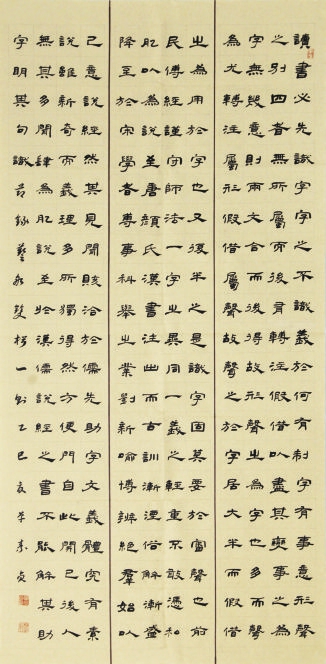 讀書必先識字字之不識義於何有制字有事意形聲
之別四者無所屬而後有轉注假借以盡其變事之為
字無幾意則兩文合而後得故形聲之為字也多而意
為尤轉注屬形假借屬聲故聲之於字居大半而假借
之為用於字也又復半之是識字固莫要於審聲也前
民傳經謹守師法一字之異同一義之輕重不敢憑私
肊以為說至唐顏氏漢書注出而古訓漸湮俗解漸盛
降至於宋學者專事科舉之業劉新喻博辨絕羣始以
己意說經然其見聞賅洽於儒先助字文義體究有素
說雖新奇而義理多所獨得然方便門自此開已後人
無其多聞肆為肊說至於漢儒說經之書不能解其助
字明其句 乙巳